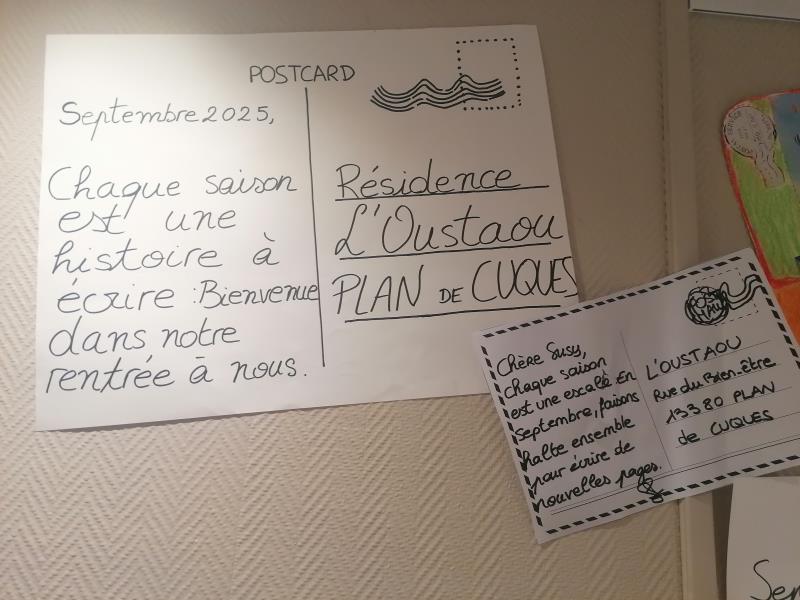 POSTCARD
Septembre 2025,
Chaque saison
est une
histoire à
écrire : Bienvenue
dans notre
rentrée à nous.
Résidence
L'Oustaou
PLAN DE CUQUES
Chère Susy,
chaque saison
est une escale. En
septembre, faisons
halte ensemble
pour écrire de
nouvelles pages.
L'OUSTAOU
Rue du Bien-être
13380 PLAN
de CUQUES